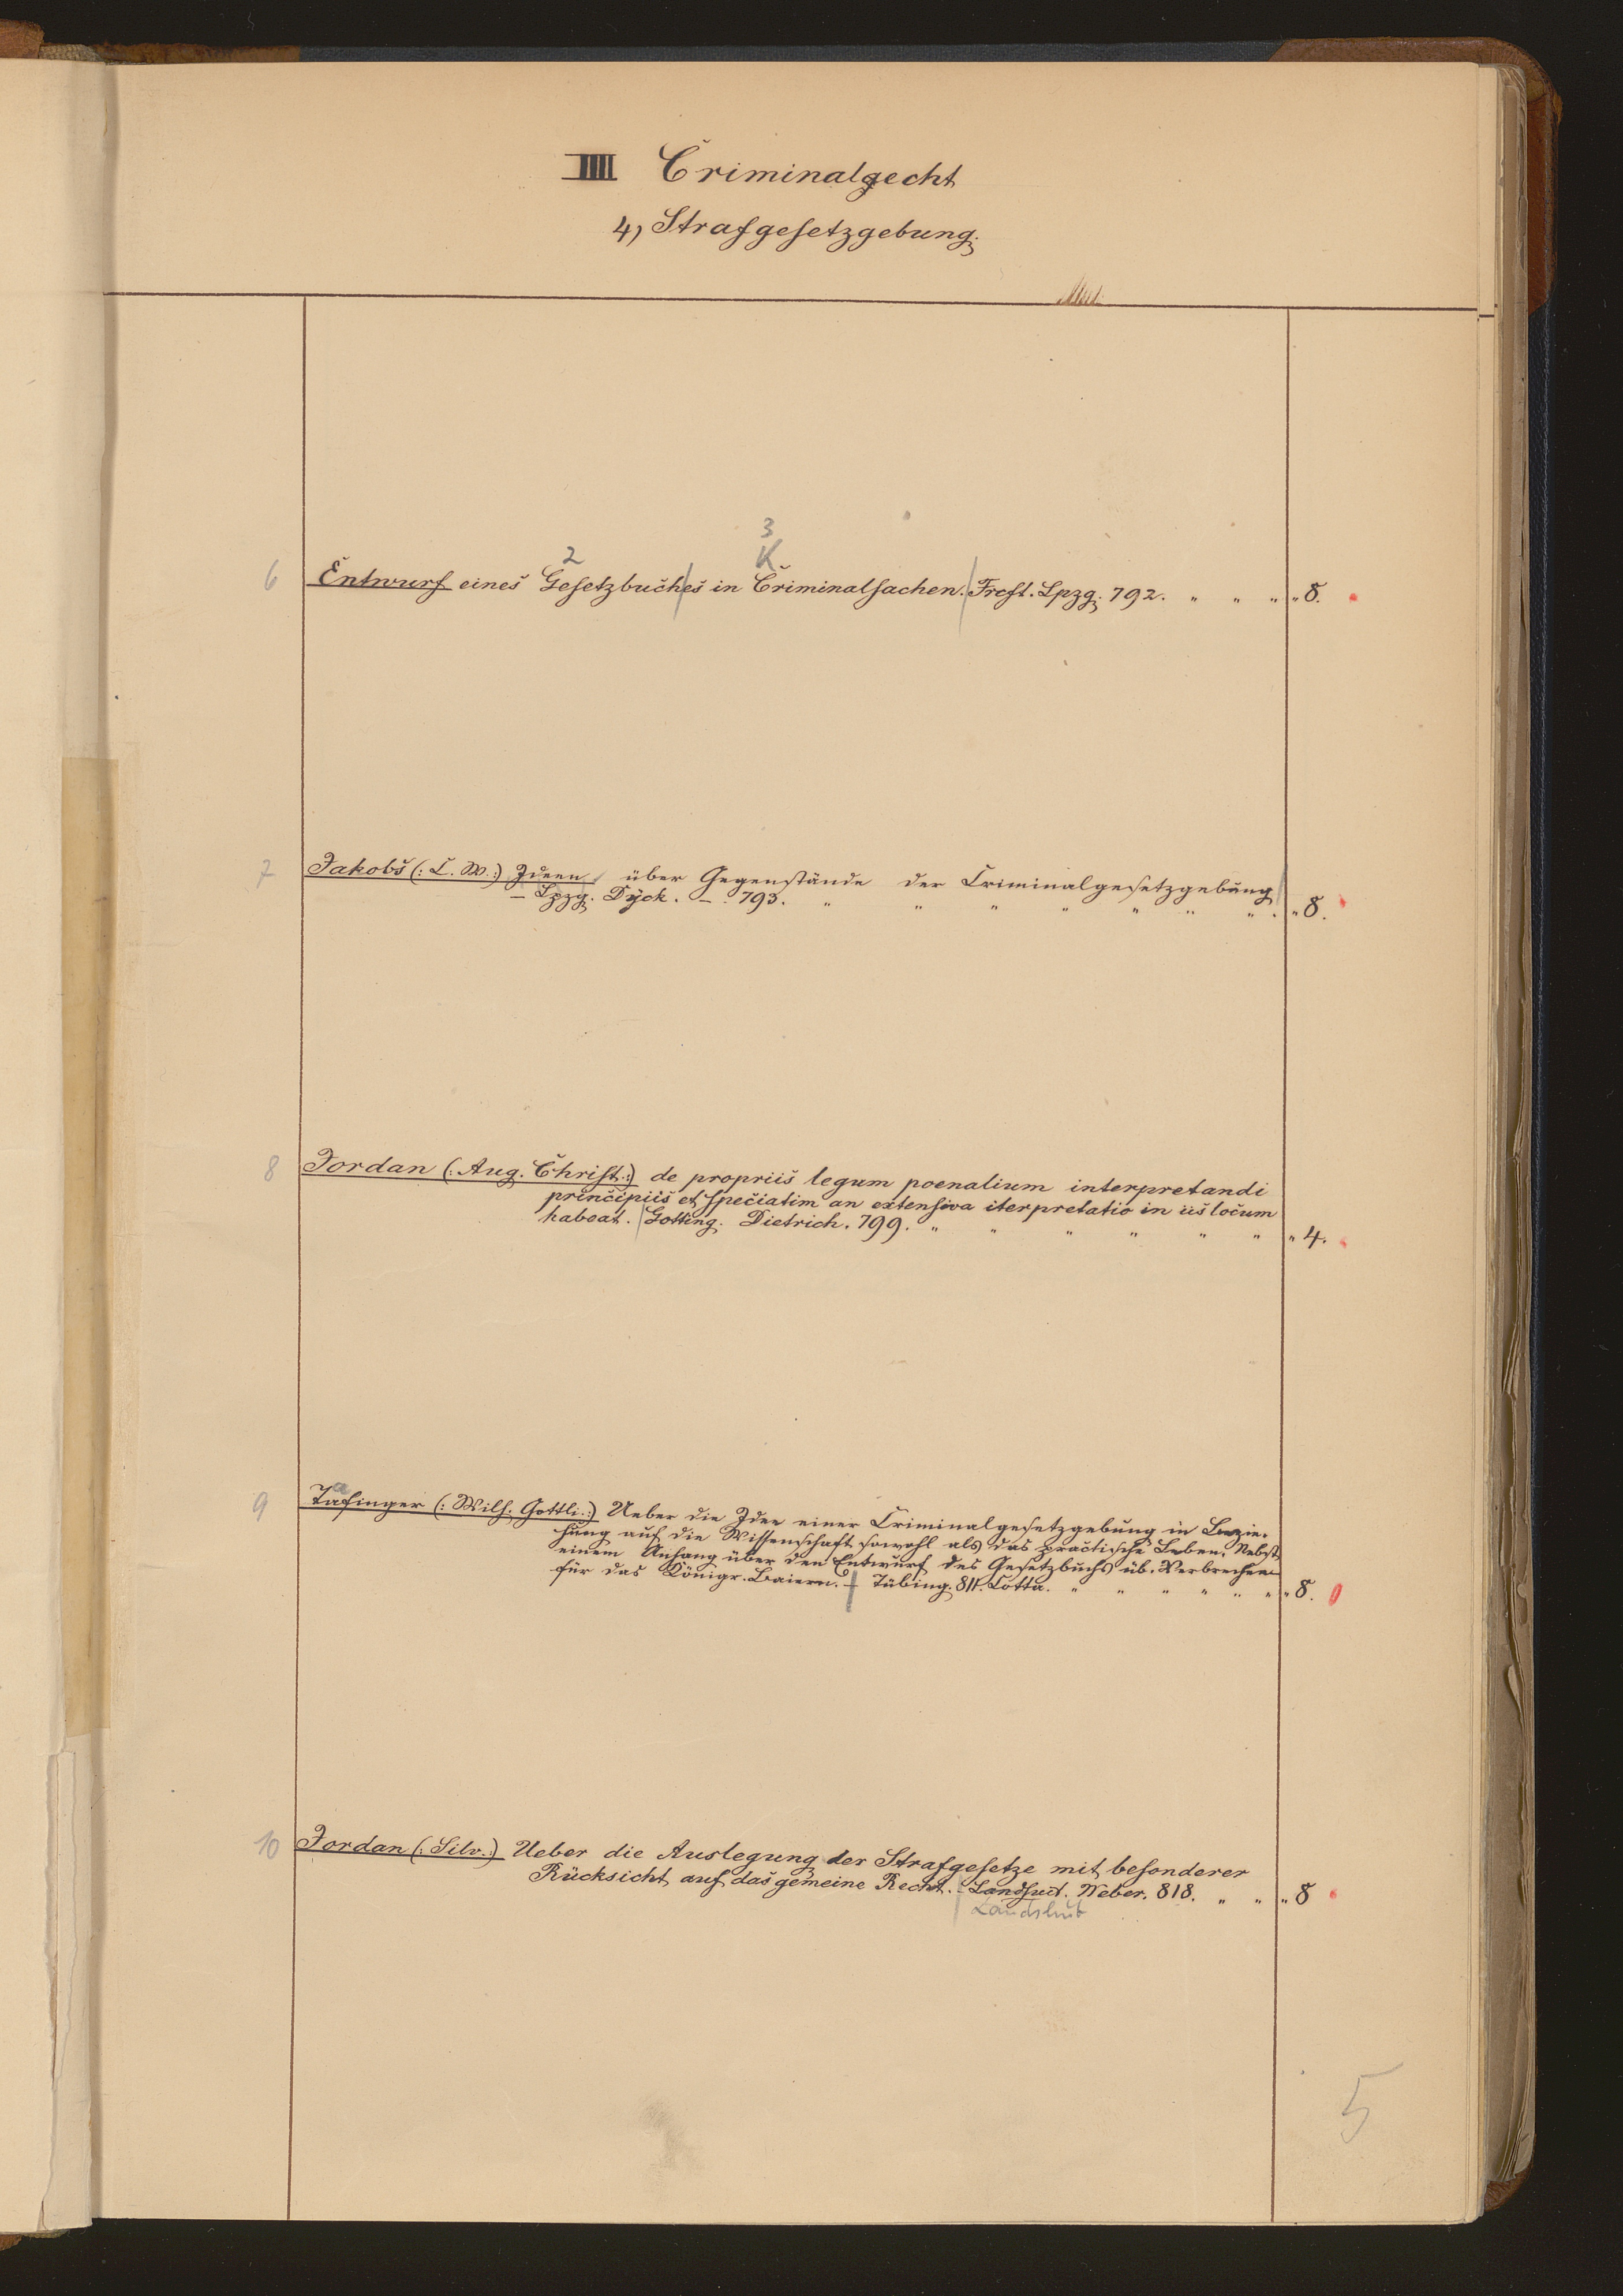 IIII Criminalrecht
4, Strafgesetzgebung.
3
2 K
6 Entwurf eines Gesetzbuches in Criminalsachen. Frcft. Lpzg. 792. " " " " 8.
7 Jakobs (: L. W.:) Ideen über Gegenstände der Criminalgesetzgebung
– Lpzg. Dyck. – 793. " " " " " " " . " 8.
8 Jordan (: Aug. Christ.:) de propriis legum poenalium interpretandi
principiis et speciatim an extensiva iterpretatio in iis locum
habeat. Gotting. Dietrich. 799. " " " " " " " 4.
9 Tafinger (: Wilh. Gottli.:) Ueber die Idee einer Criminalgesetzgebung in Bezie-
hung auf die Wissenschaft sowohl als das practische Leben. Nebst
einem Anhang über den Entwurf des Gesetzbuchs üb. Verbrechen
für das Königr. Baiern. – Tübing. 811. Cotta. " " " " " " " 8.
10 Jordan (: Silv.:) Ueber die Auslegung der Strafgesetze mit besonderer
Rücksicht auf das gemeine Recht. – Landshut. Weber. 818. " " " 8
Landshut
5